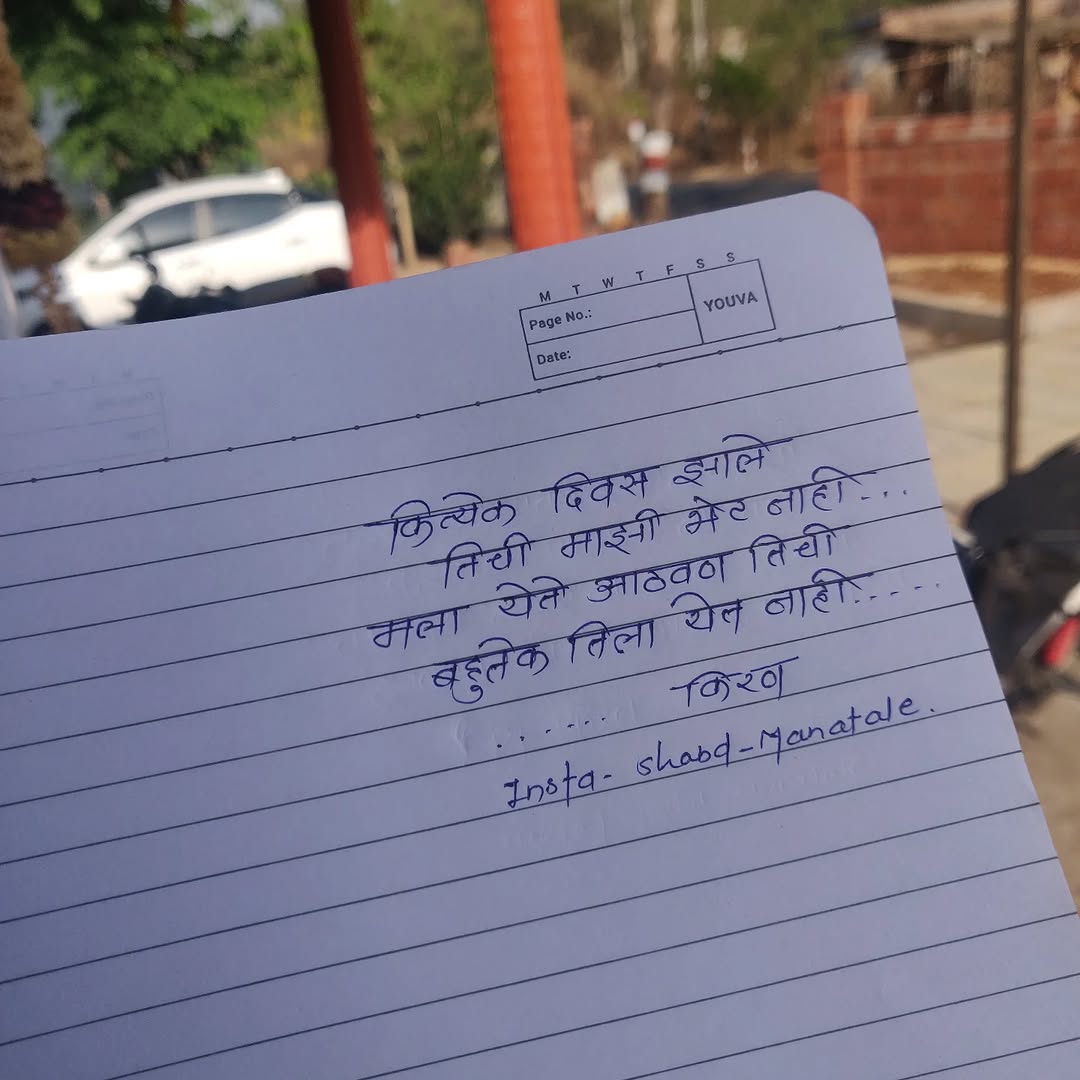 M T W T F S S
Page No.:
YOUVA
Date:
कित्येक दिवस झाले
तिची माझी भेट नाही...
मला येते आठवण तिची
बहुतेक तिला येत नाही.....
...... किरण
Insta- shabd-Manatale.